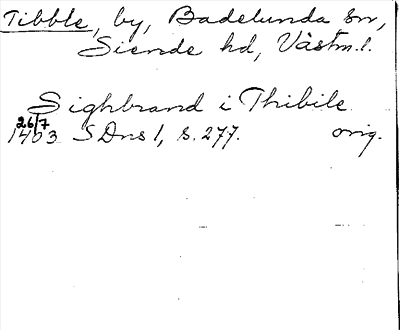 Tibble, by, Badelunda sn,
Siende hd, Västm.l.
Sighbrand i Thibile
26/7
1403 SDns 1, s. 277. orig.